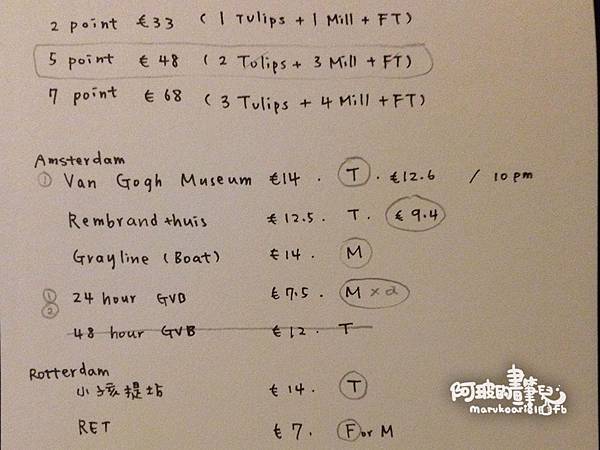 2 point €33 (1 Tulips + 1 Mill + FT)
5 point €48 (2 Tulips + 3 Mill + FT)
7 point €68 (3 Tulips + 4 Mill + FT)
Amsterdam
① Van Gogh Museum €14. T. €12.6 / 10pm
Rembrandthuis €12.5. T. €9.4
Grayline (Boat) €14. M
① ② 24 hour GVB €7.5. M x 2
48 hour GVB €12. T
Rotterdam
小孩堤坊 €14. T
RET €7. F or M
阿玻的畫筆兒